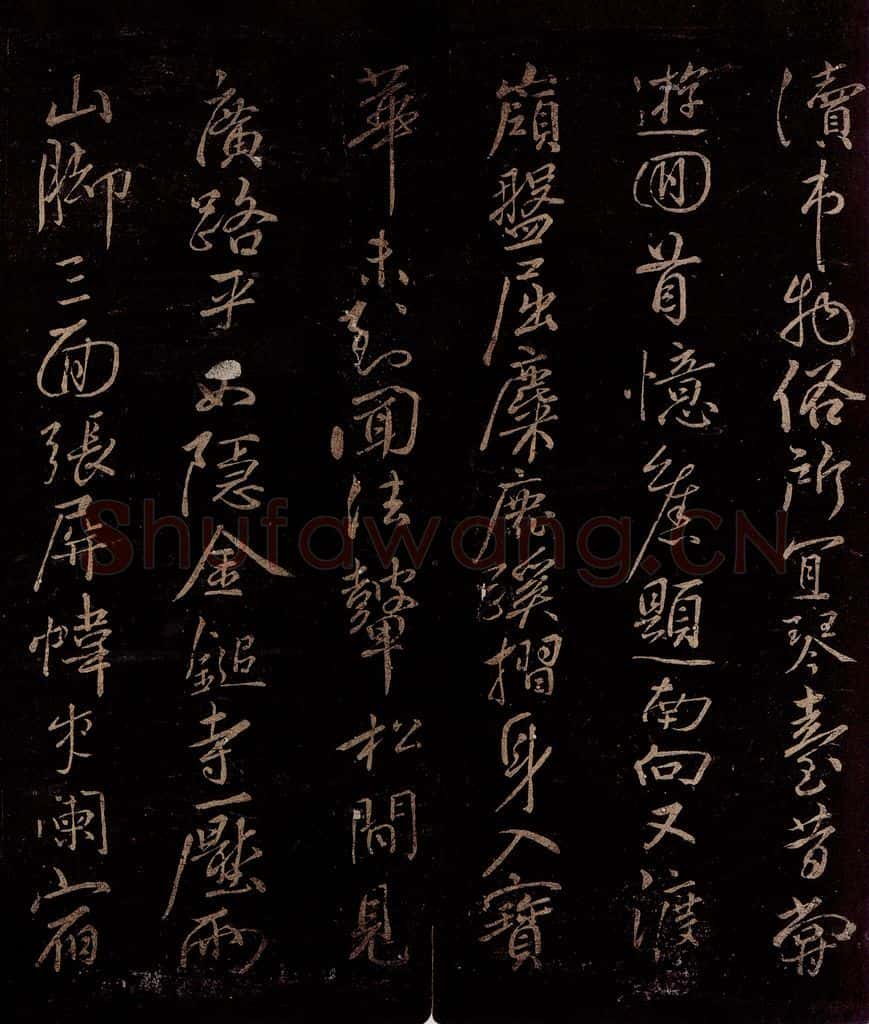 瀆市物俗所宜琴臺昔嘗
遊回首憶崖顛南向又渡
嶺盤屈麋鹿蹊摺身入寶
華未到聞法鼙松間見
廣路平如隱金鎚寺壓兩
山腳三面張屏幃闌宿
Shufawang.CN